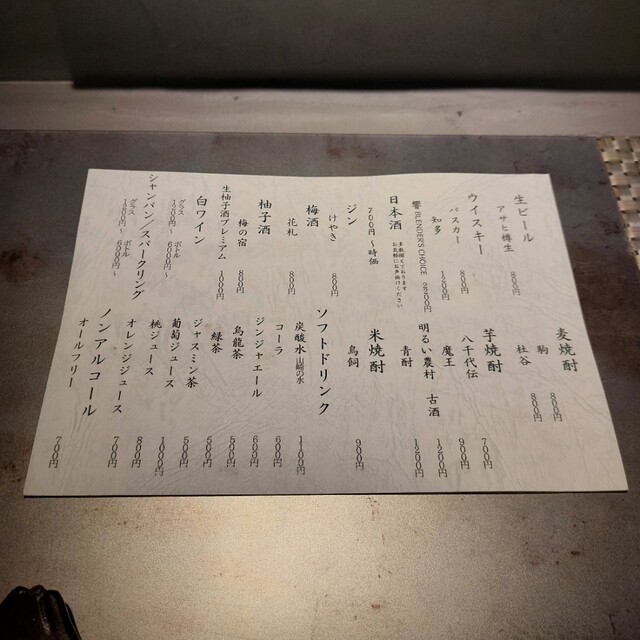 生ビール
アサヒ樽生 800円
ウイスキー
バスカー 800円
知多 1200円
響 BLENDER'S CHOICE 2500円
日本酒
700円〜時価
多数揃えております
お気軽にお声掛けください
ジン
けやき 800円
梅酒
花札 800円
柚子酒
梅の宿 800円
生柚子酒プレミアム 1000円
白ワイン
グラス 1200円〜 ボトル 6000円〜
シャンパン/スパークリング
グラス 1200円〜 ボトル 6000円〜
麦焼酎
駒 800円
杜谷 800円
芋焼酎
八千代伝 700円
魔王 900円
明るい農村 古酒 1200円
青酎 1200円
米焼酎
鳥飼 900円
ソフトドリンク
炭酸水 山崎の水 1100円
コーラ 600円
ジンジャエール 600円
烏龍茶 500円
緑茶 500円
ジャスミン茶 500円
葡萄ジュース 1000円
桃ジュース 800円
オレンジジュース 700円
ノンアルコール
オールフリー 700円